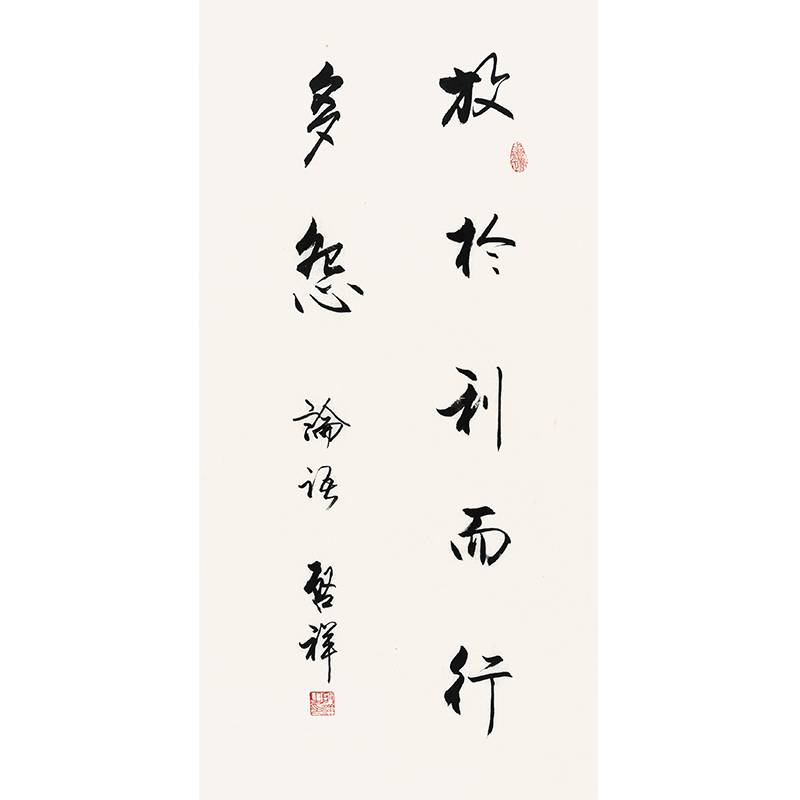 放於利而行
多怨 論語 啓祥